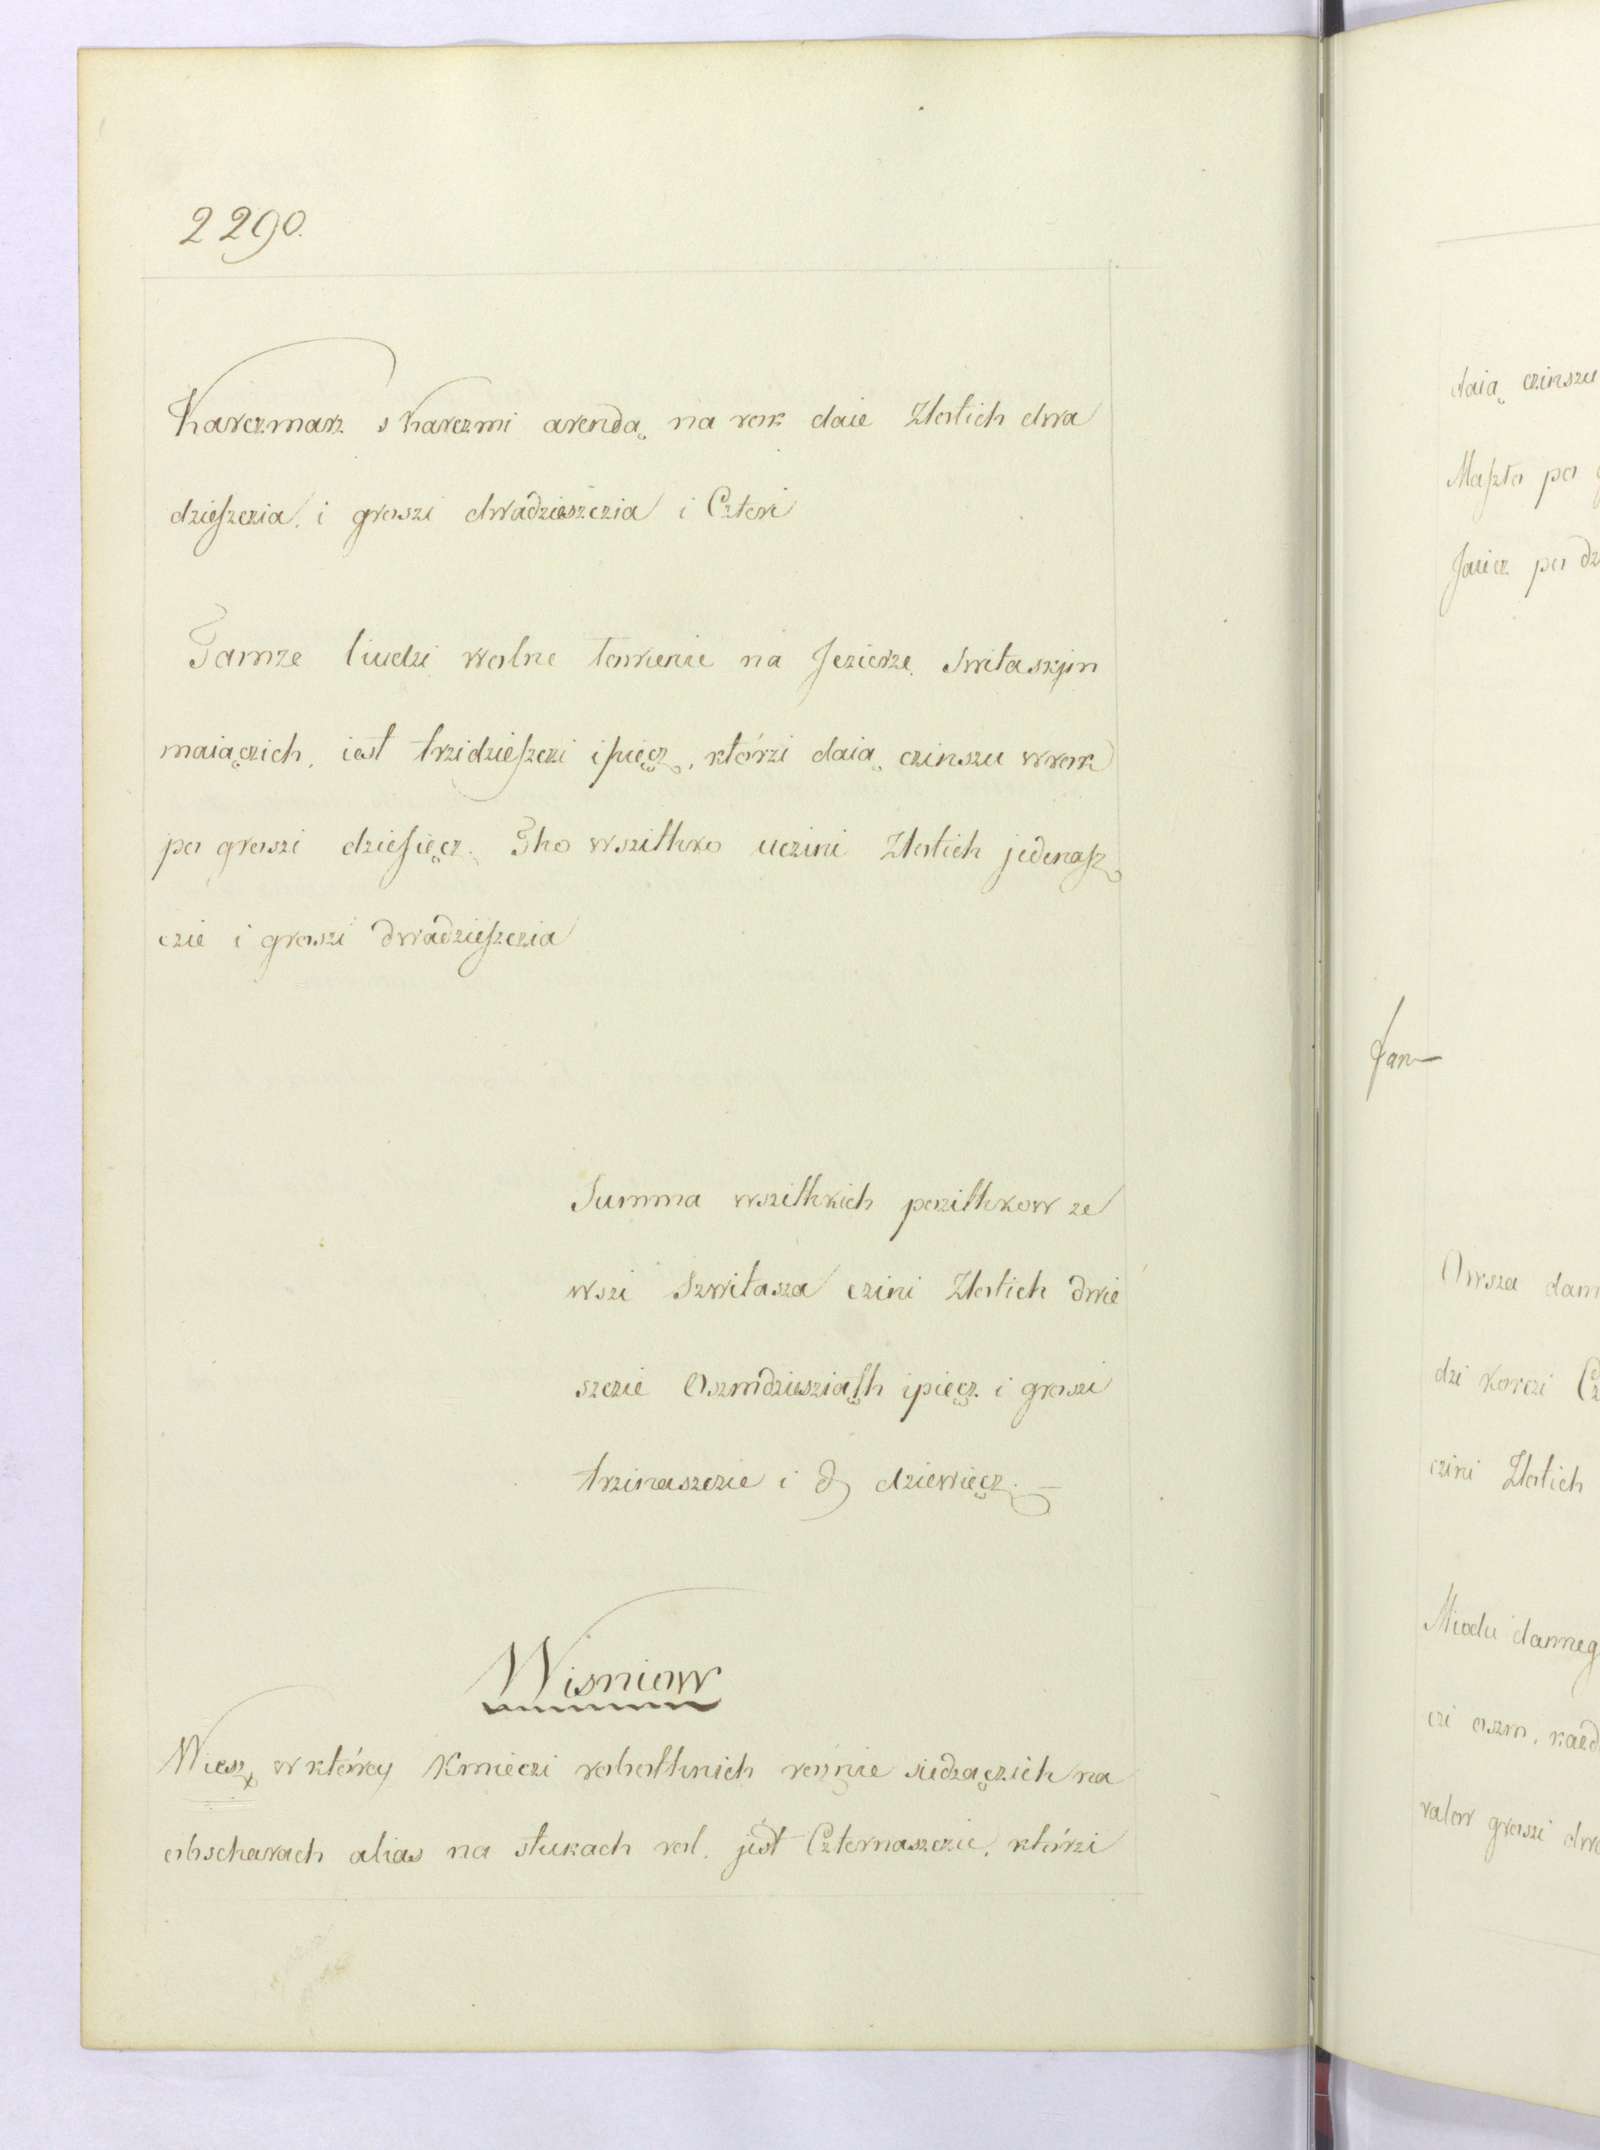 2290.
Karczmarz s karczmi arendą na rok daie Złotich dwa
dzieszczia. i groszi dwadzieszczia i Czteri
Tamze liudzi wolne łowienie na Jezierze Switaskjm
maiączich, iest trzidzieszczi i pięcz, którzi daią czinszu w rok
po groszi dziesięcz. Tho wszithko uczini Złotich jedenasz
czie i groszi dwadzieszczia
Summa wszithkich pozithkow ze
wszi Szwitasza czini Złotich dwie
szczie Oszmdziesziąth i pięcz i groszi
trzinaszczie i d dziewięcz. —
Wisniow
Wiesz w którey Kmieczi robothnich rożnie siedzączich na
obscharach alias na stukach rol. jist Czternaszczie, którzi
daią czinszu
Maszto po
Jaiecz po dz
fan
Owsza dan
dzi korczi
czini Złotich
Miodu danneg
czi oszm, każd
valor groszi dwa